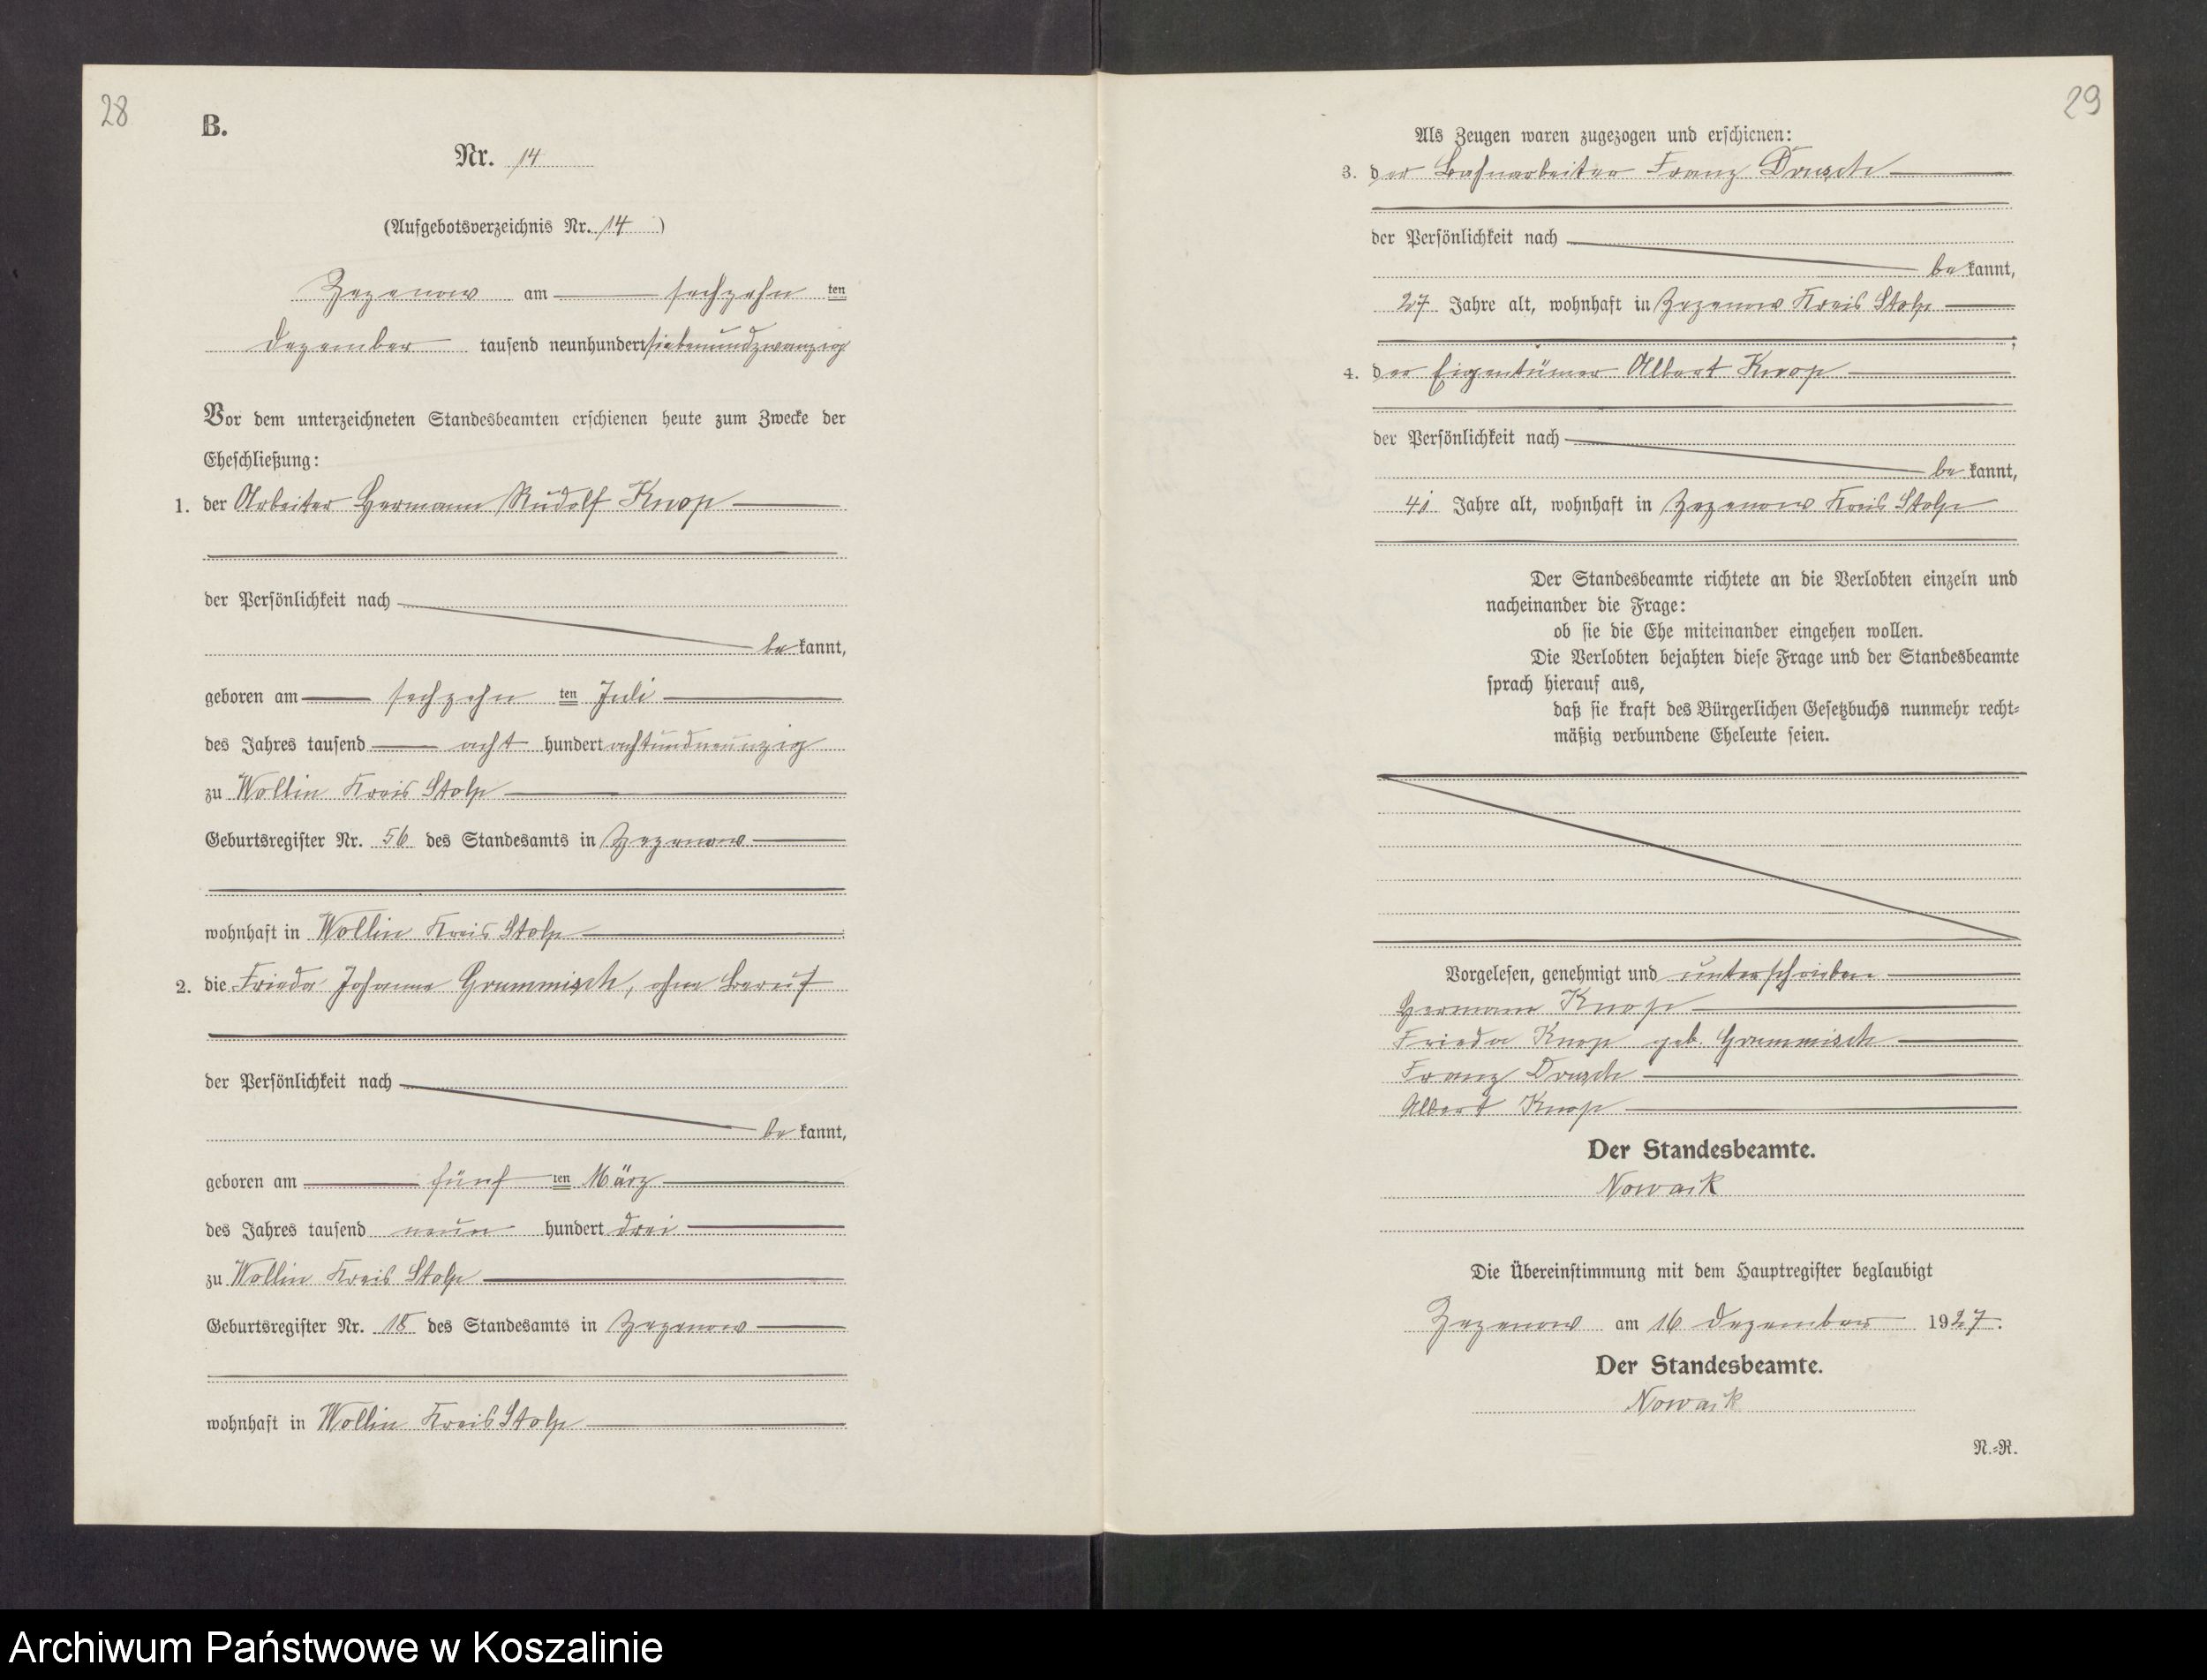 28
B.
Nr. 14
(Aufgebotsverzeichnis Nr. 14)
Zezenow am sechzehn ten
Dezember tausend neunhundert siebenundzwanzig
Vor dem unterzeichneten Standesbeamten erschienen heute zum Zwecke der
Eheschließung:
1. der Arbeiter Hermann Rudolf Knop
der Persönlichkeit nach
be kannt,
geboren am sechzehn ten Juli
des Jahres tausend acht hundert achtundneunzig
zu Wollin Kreis Stolp
Geburtsregister Nr. 56 des Standesamts in Zezenow
wohnhaft in Wollin Kreis Stolp
2. die Frieda Johanna Grammisch, ohne Beruf
der Persönlichkeit nach
be kannt,
geboren am fünf ten März
des Jahres tausend neun hundert drei
zu Wollin Kreis Stolp
Geburtsregister Nr. 18 des Standesamts in Zezenow
wohnhaft in Wollin Kreis Stolp
29
Als Zeugen waren zugezogen und erschienen:
3. der Bahnarbeiter Franz
der Persönlichkeit nach
be kannt,
27 Jahre alt, wohnhaft in Zezenow Kreis Stolp
;
4. der Eigentümer Albert Knop
der Persönlichkeit nach
be kannt,
41 Jahre alt, wohnhaft in Zezenow Kreis Stolp
Der Standesbeamte richtete an die Verlobten einzeln und
nacheinander die Frage:
ob sie die Ehe miteinander eingehen wollen.
Die Verlobten bejahten diese Frage und der Standesbeamte
sprach hierauf aus,
daß sie kraft des Bürgerlichen Gesetzbuchs nunmehr recht-
mäßig verbundene Eheleute seien.
Vorgelesen, genehmigt und unterschrieben
Hermann Knop
Frieda Knop geb. Grammisch
Franz
Albert Knop
Der Standesbeamte.
Nowack
Die Übereinstimmung mit dem Hauptregister beglaubigt
Zezenow am 16 Dezember 1927.
Der Standesbeamte.
Nowack
N.-R.
Archiwum Państwowe w Koszalinie